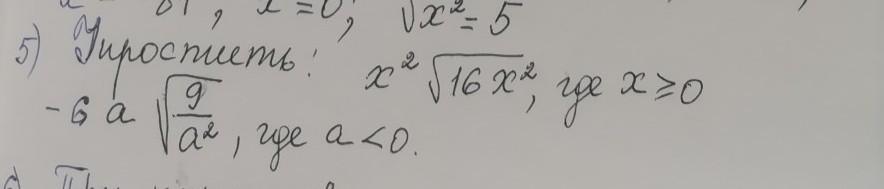 x = 0; √x² = 5
5) Упростить: x² √16x², где x ≥ 0
-6a √(9/a²), где a < 0.